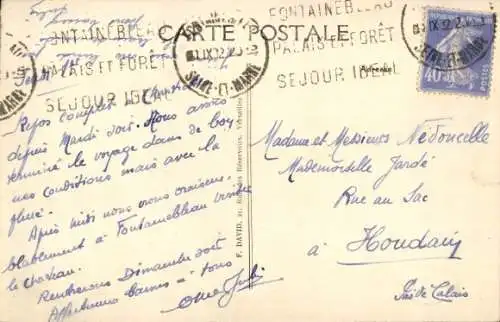 CARTE POSTALE
FONTAINEBLEAU
PALAIS ET FORÊT
SÉJOUR IDÉAL
FONTAINEBLEAU
PALAIS ET FORÊT
SÉJOUR IDÉAL
SEINE-ET-MARNE
SEINE-ET-MARNE
40
POSTES
Repos complet
depuis Mardi soir. Nous avons
terminé le voyage dans de bon
nes conditions mais avec la
pluie.
Après midi nous irons vraisem
blablement à Fontainebleau visiter
le chateau.
Rentrerons Dimanche soir
Affectueux baisers à tous
F. DAVID, Réservoirs, Versailles
Madame et Messieurs Nédoncelle
Mademoiselle Jardé
Rue au Sac
à Houdain
Pas de Calais